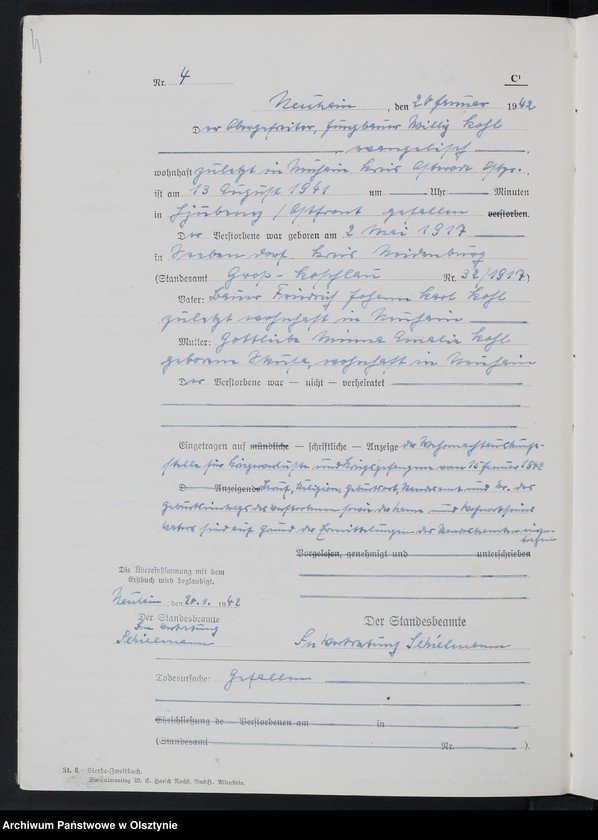 Nr. 4
C¹
Neuhain, den 20 Januar 1942
Der Obergefreiter, Jungbauer Willy Kohl
evangelisch
wohnhaft zuletzt in Neuhain Kreis Osterode Ostpr.
ist am 13 August 1941 um Uhr Minuten
in / Ostfront gefallen verstorben.
Der Verstorbene war geboren am 2 Mai 1917
in Seebendorf Kreis Neidenburg
(Standesamt Groß-Koschlau Nr. 32/1917)
Vater: Bauer Friedrich Johann Karl Kohl
zuletzt wohnhaft in Neuhain
Mutter: Gottliebe Minna Amalie Kohl
geborene wohnhaft in Neuhain
Der Verstorbene war — nicht — verheiratet
Eingetragen auf mündliche — schriftliche — Anzeige der Wehrmachtauskunft-
stelle für Kriegerverluste und Kriegsgefangene vom 15 Januar 1942
D Anzeigende Beruf, Religion, Geburtsort, Standesamt und Nr. des
Geburtseintrags des Verstorbenen sowie der Name und Wohnort seines
Vaters sind auf Grund der Ermittelungen des Standesbeamten einge-
tragen
Vorgelesen, genehmigt und unterschrieben
Die Übereinstimmung mit dem
Erstbuch wird beglaubigt.
Neuhain, den 20.1. 1942
Der Standesbeamte
In Vertretung
Schielmann
Der Standesbeamte
In Vertretung Schielmann
Todesursache: Gefallen
Eheschließung de Verstorbenen am in
(Standesamt Nr. ).
St. 6. Sterbe-Zweitbuch.
Formularverlag W. E. Harich Nachf. GmbH., Allenstein.
Archiwum Państwowe w Olsztynie